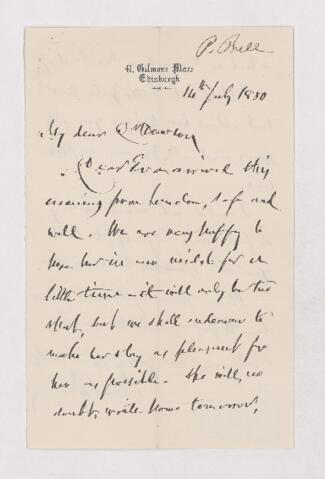 P. Bell
41, Gilmore Place
Edinburgh
14th July 1880
My dear Dawson,
Dear Eva arrived this
evening from London, safe and
well. We are very happy to
have her in our midst for a
little time – it will only be too
short, but we shall endeavour to
make her stay as pleasant for
her as possible. She will, no
doubt, write home tomorrow,